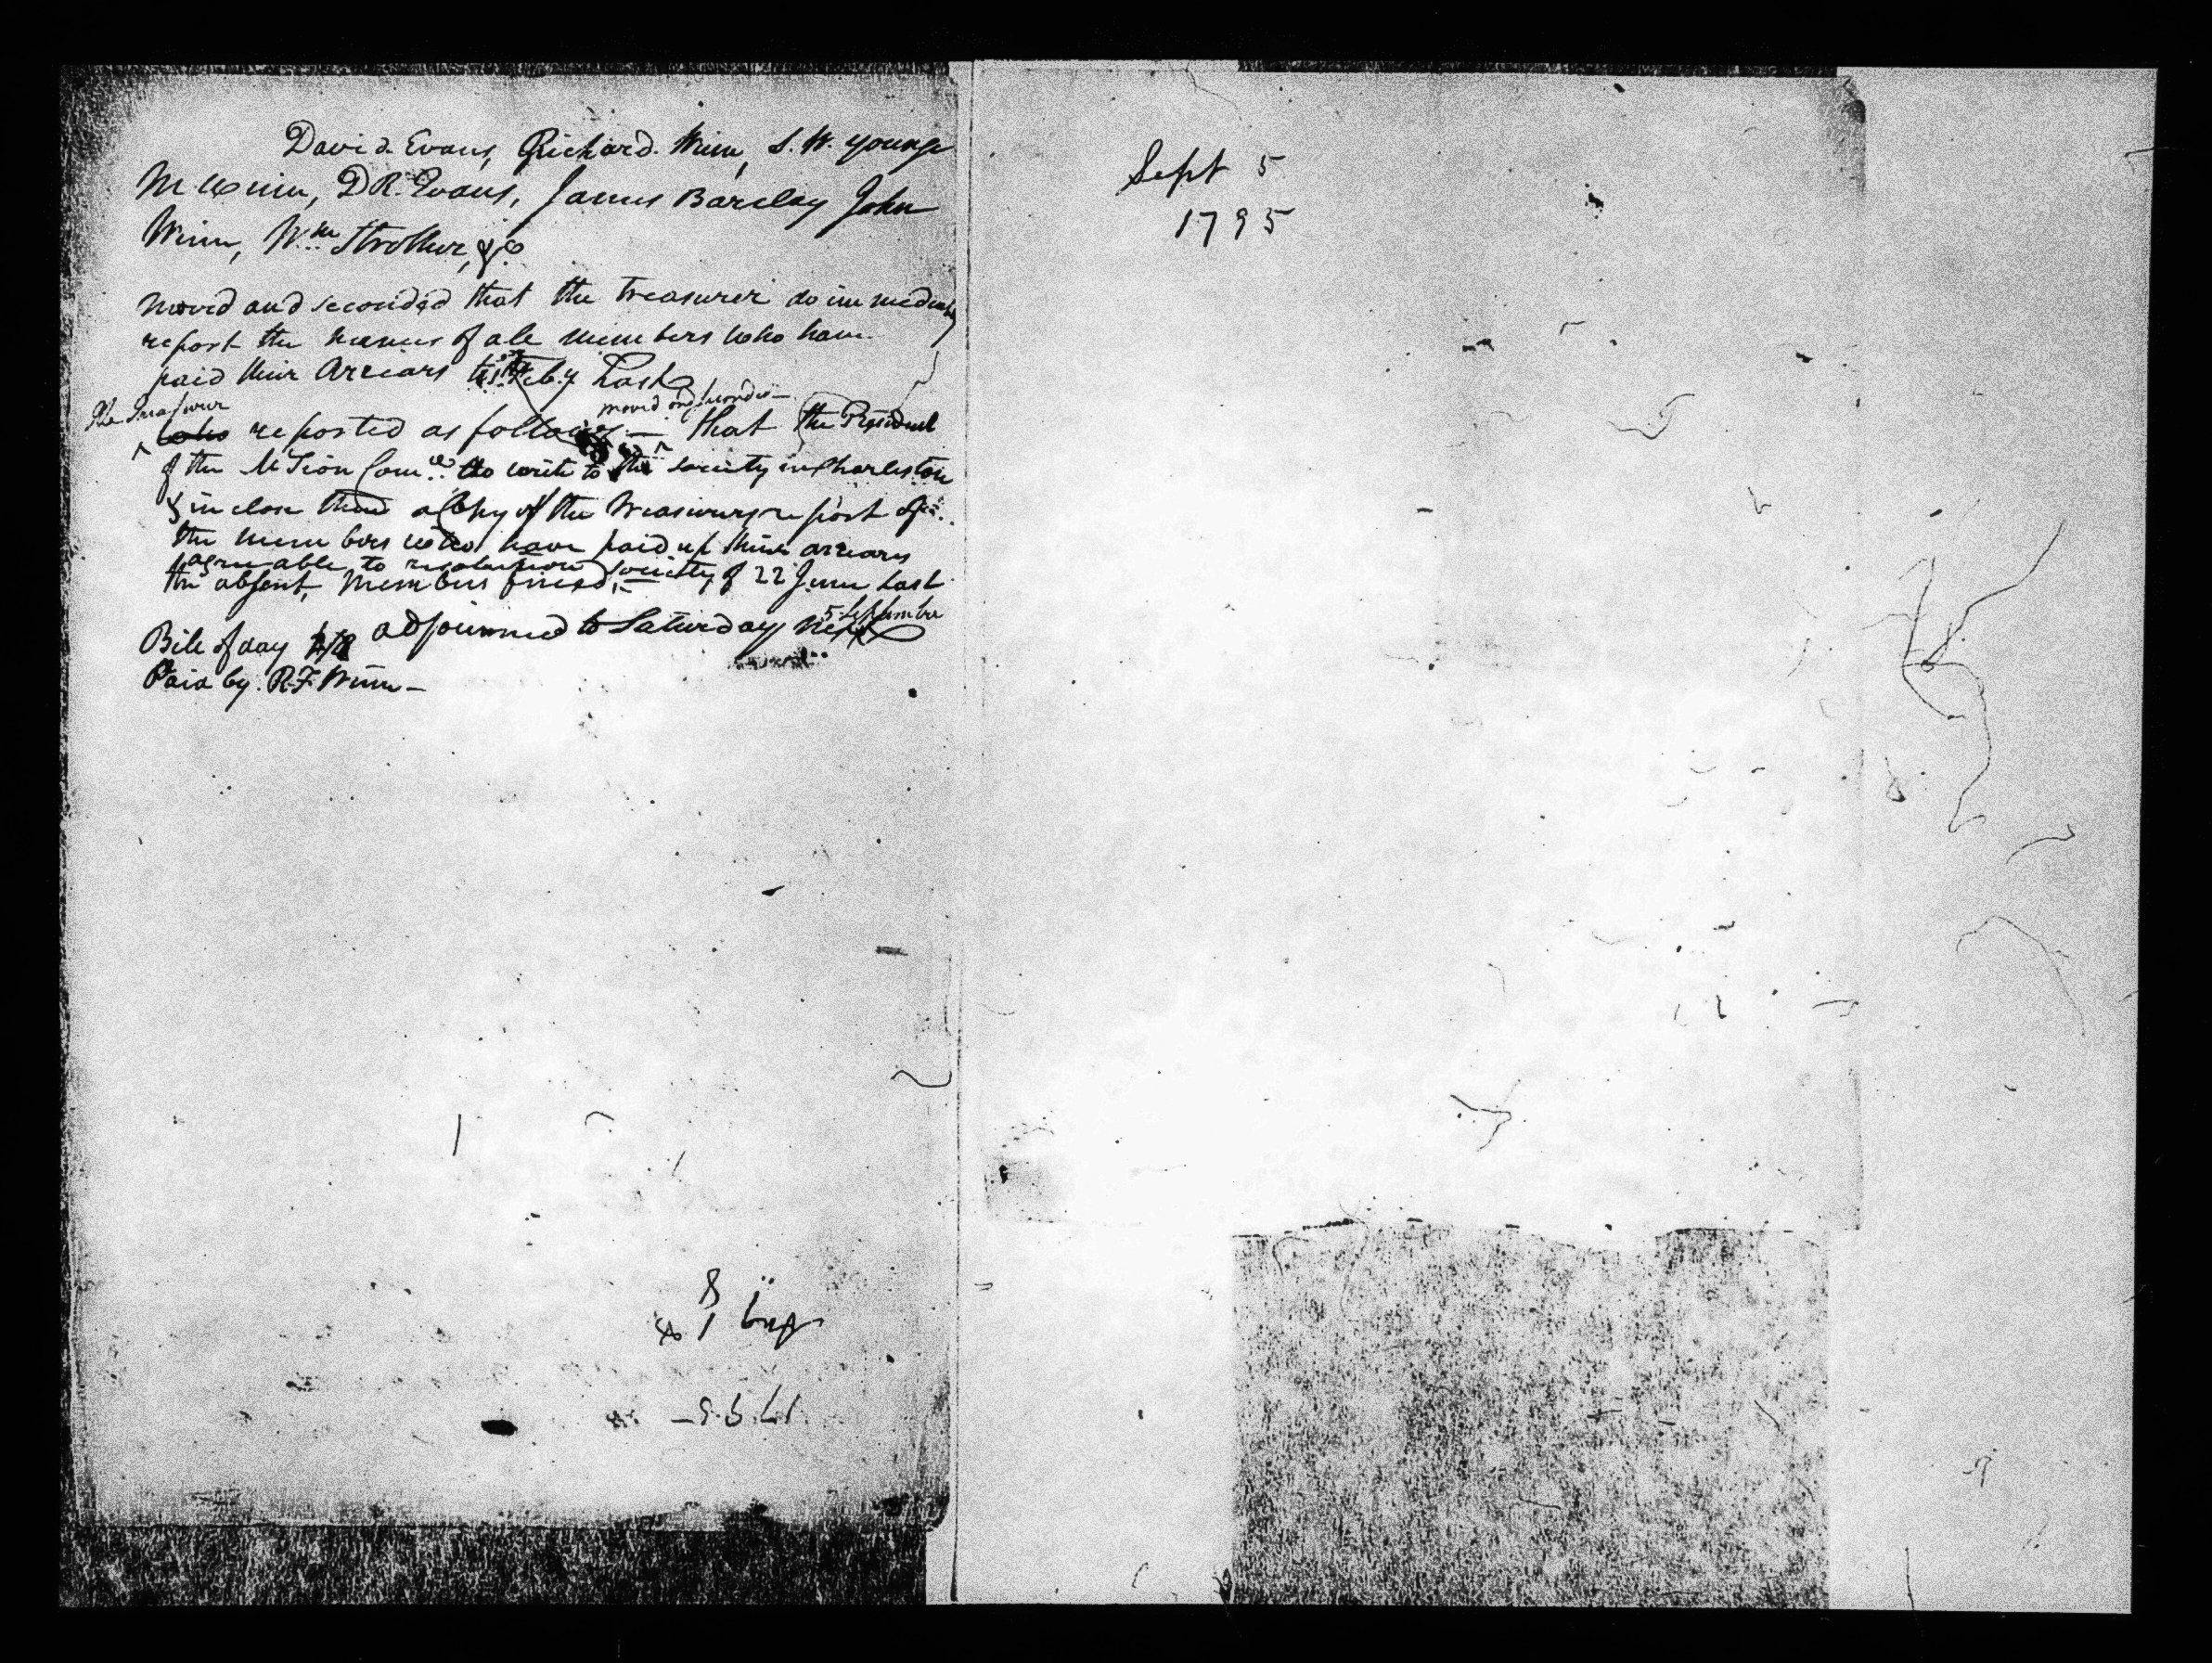 David Evans, Richard Winn, S. W. Yongue
M Winn, D R. Evans, James Barclay John
Winn, Wm Strother, &c
Moved and seconded that the treasurer do immediately
report the names of all members who have
paid their Arriars to 1st Feby Last
The Treasurer moved and seconded
who reported as follows — that the President
of the Mt Sion Comee do write to the society in Charleston
& inclose them a Copy of the Treasurers report of
the members who have paid up their arriars
agreeable to resolution society of 22 June Last
the absent Members fined,
5 September
adjourned to Saturday next
Bill of day
Paid by R. F. Winn —
Sept 5
1795